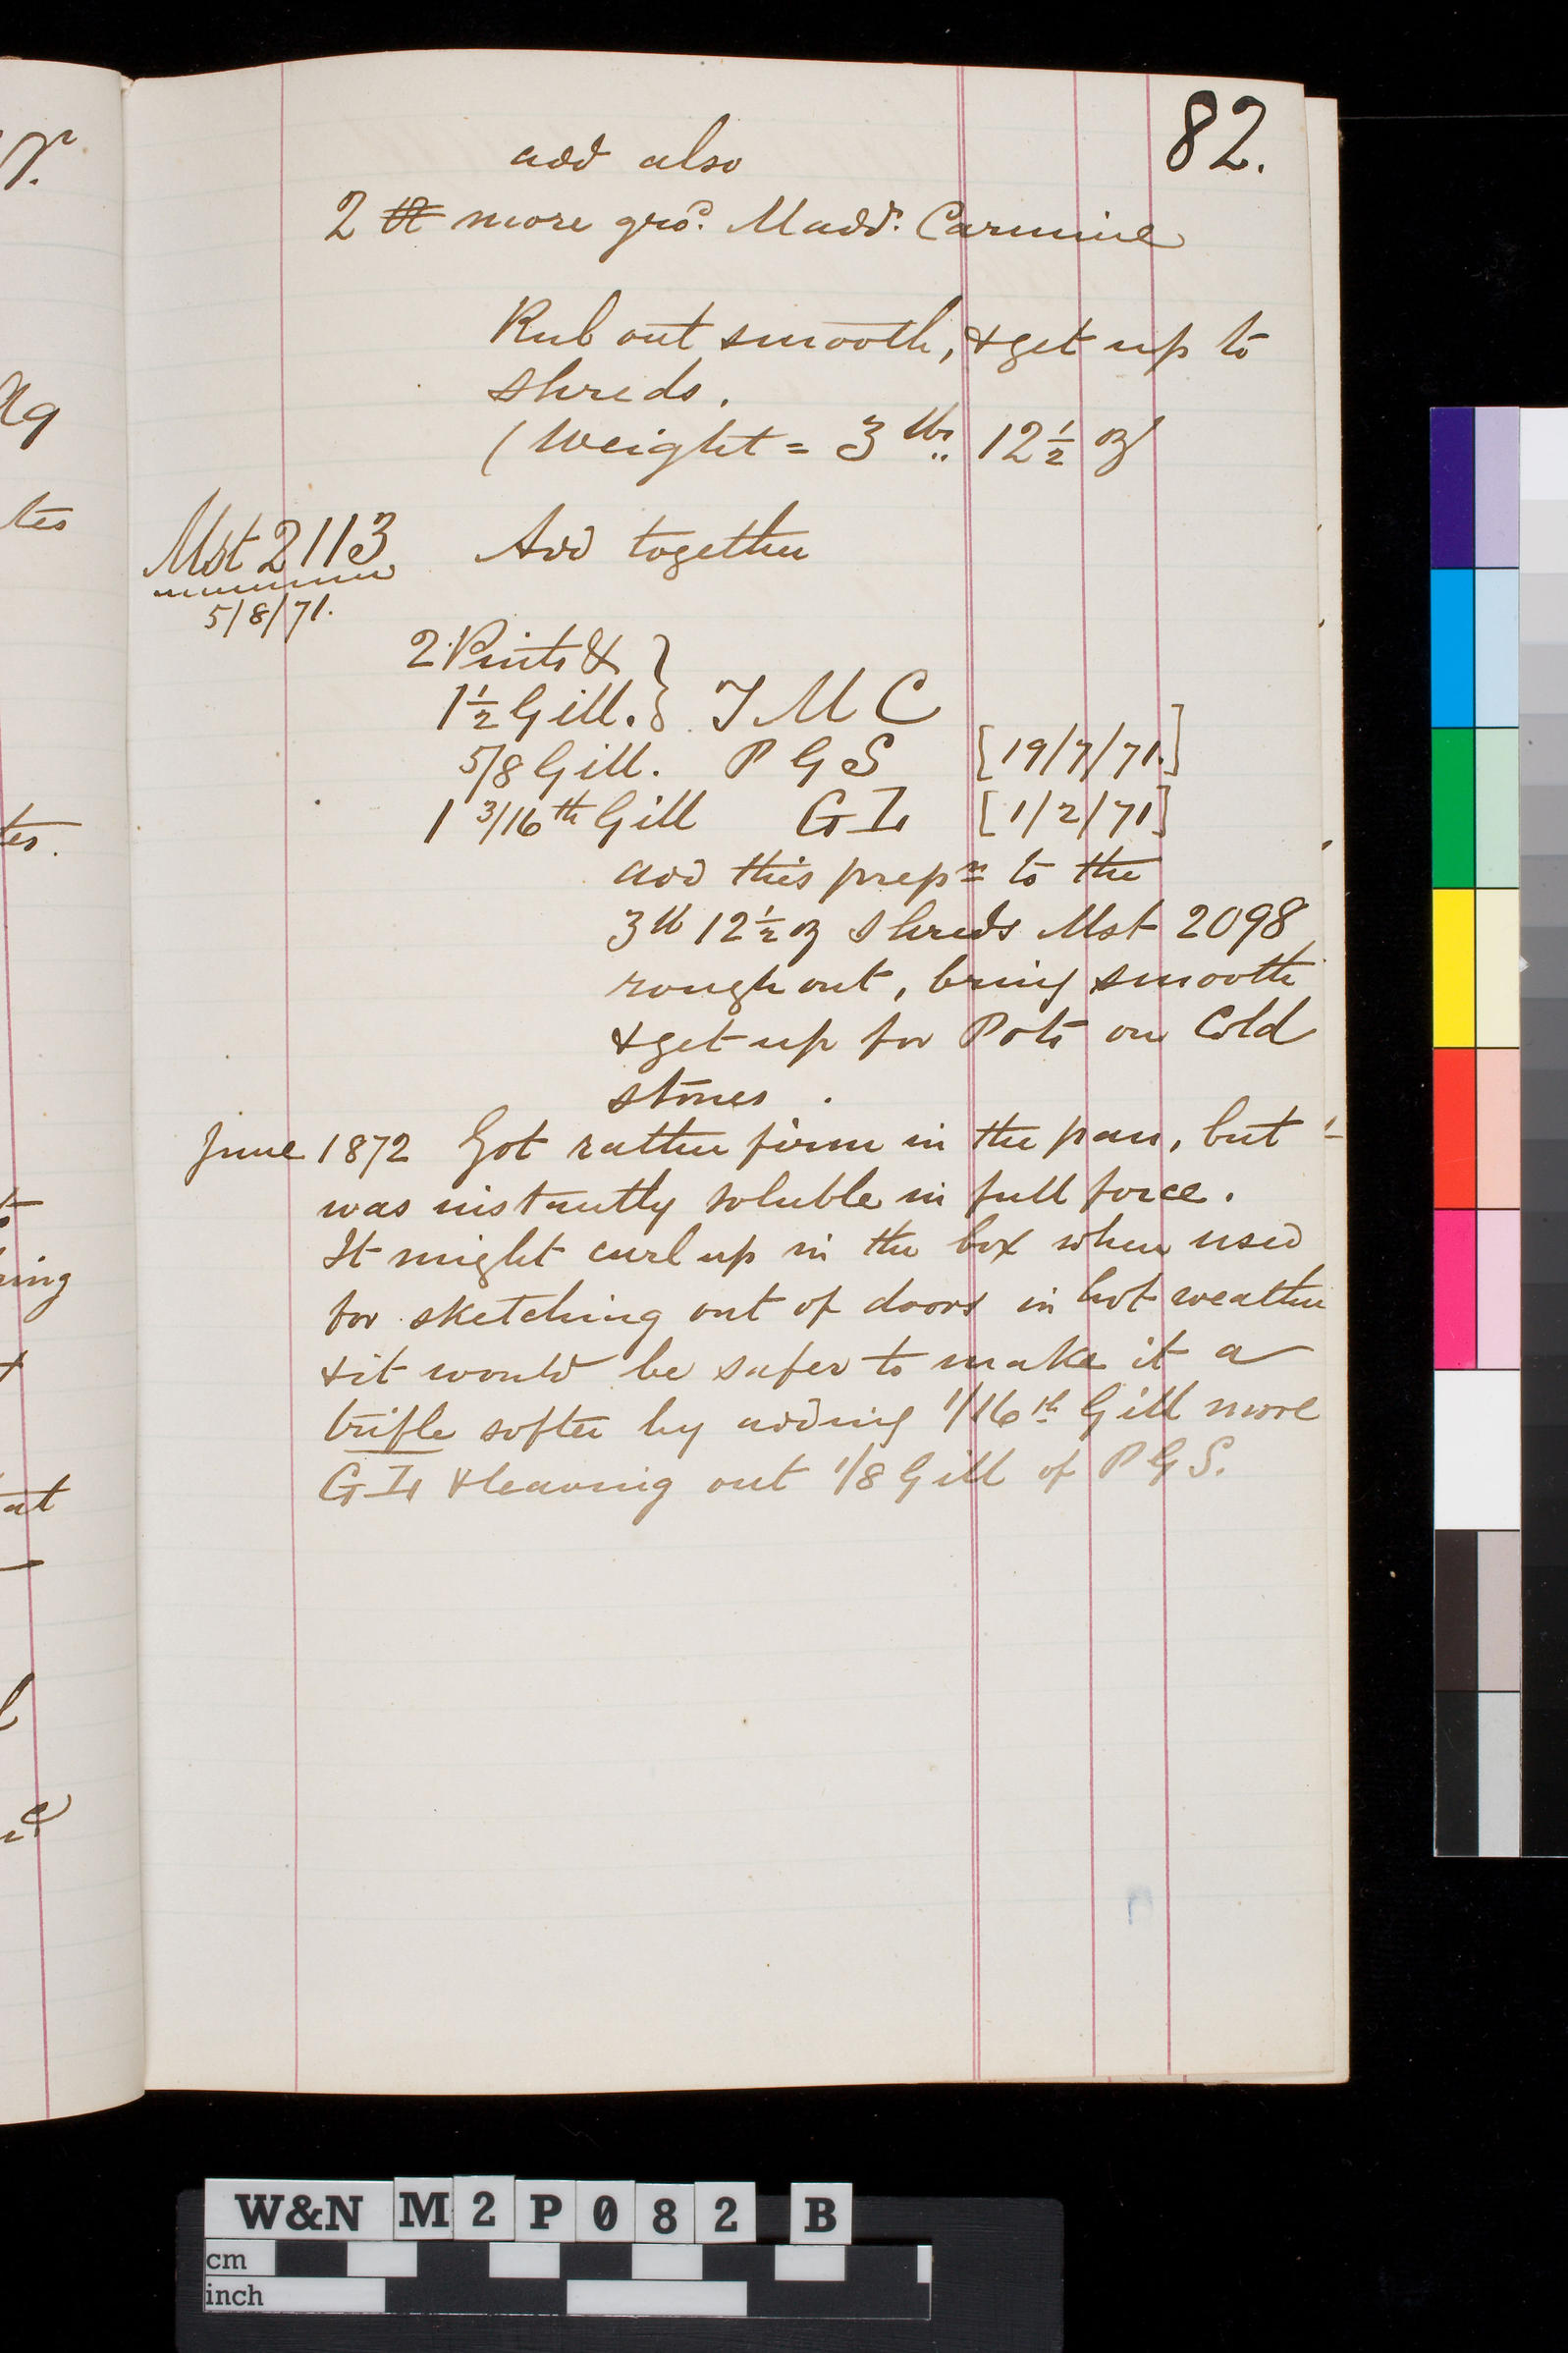 82.
add also
2 lb more gro.d Madd.r Carmine
Rub out smooth, & get up to
shreds.
(Weight = 3 lbs.. 12 1/2 oz
Mst 2113 Add together
5/8/71.
2 Pints &
1 1/2 Gill. } J M C
5/8 Gill. P G S [19/7/71.]
1 3/16th Gill G I [1/2/71]
add this prepn to the
3 lb 12 1/2 oz shreds Mst 2098
rough out, bring smooth
& get up for Pots on Cold
stones.
June 1872 Got rather firm in the pan, but
was instantly soluble in full force.
It might curl up in the box when used
for sketching out of doors in hot weather
& it would be safer to make it a
trifle softer by adding 1/16th Gill more
G I & leaving out 1/8 Gill of P G S.
tes
tes.
ing
at
W&N M2P082 B
cm
inch